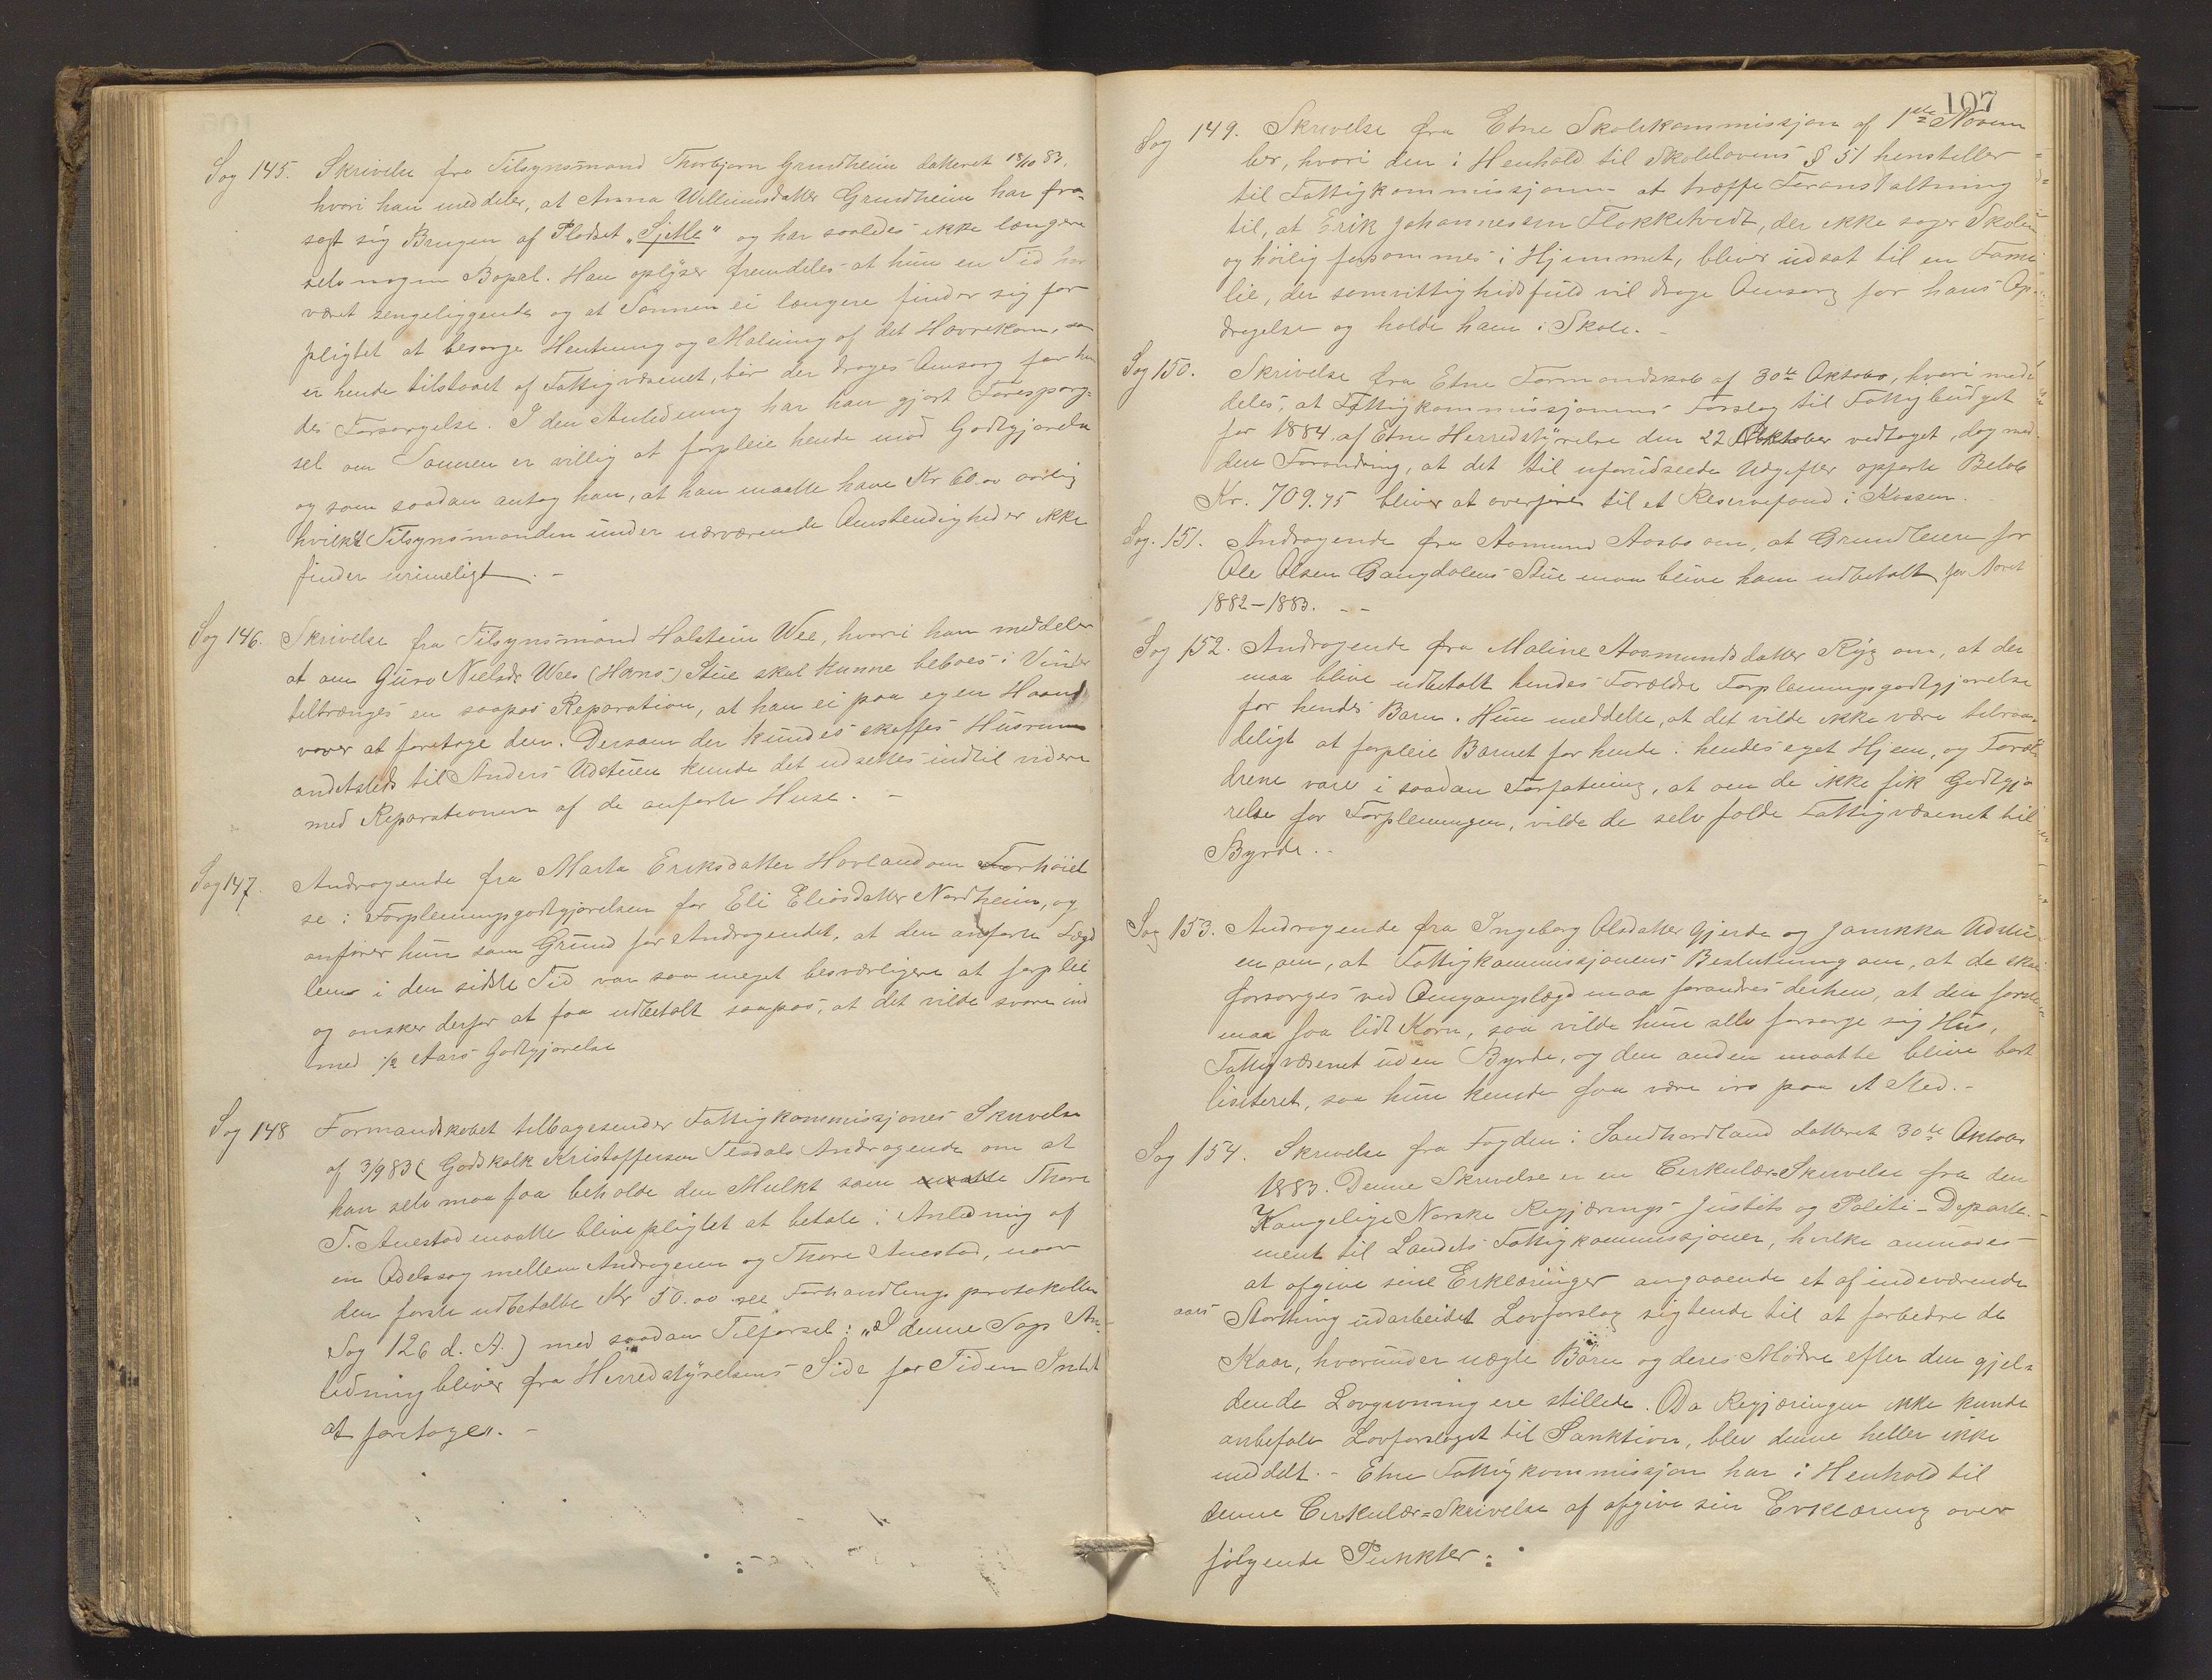 Sag 145. Skrivelse fra Tilsynsmand Thorbjørn Grindheim datteret 18/10 83,
hvori han meddeler, at Anna Wellumsdatter Grindheim har fra-
sagt sig Brugen af Pladset „Sjetle" og har saaledes ikke længere
selv nogen Bopæl. Han oplyser fremdeles at hun en Tid har
været sengeliggende og at Sønnen ei længere finder sig for
pligtet at besørge Hentning og Malning af det Havrekorn, som
er hende tilstaaet af Fattigvæsenet, bør der drages Omsorg for hen
des Forsørgelse. I den Anledning har han gjort Forespørg-
sel om Sønnen er villig at forpleie hende mod Godtgjørelse
og som saadan antog han, at han maatte have Kr 60.00 aarlig
hvilket Tilsynsmanden under nærværende Omstendigheder ikke
finder urimeligt. -
Sag 146. Skrivelse fra Tilsynsmand Halstein Wee, hvori han meddeler
at om Guro Nielsdr Wees (Høns) Stue skal kunne beboes i Vinter
tiltrænges en saapas Reparation, at han ei paa egen Haand
vover at foretage den. Dersom der kundes skaffes Husrum
andetsteds til Anders Udstuen kunde det udsettes indtil videre
med Reparationen af de anførte Huse. -
Sag 147. Andragende fra Marta Eriksdatter Hovland om Forhøiel
se i Forpleiningsgodtgjørelsen for Eli Eliasdatter Nordheim, og
anfører hun som Grund for Andragendet, at den anførte Lægd
lem i den sidste Tid var saa meget besværligere at forpleie
og ønsker derfor at faa udbetalt saapas, at det vilde svare ind
med 1/2 Aars Godtgjørelse
Sag 148 Formandskabet tilbagesender Fattigkommissjones Skrivelse
af 3/9 83 (Godskalk Kristoffersen Tesdals Andragende om at
han selv maa faa beholde den Mulkt som maatte Thore
T. Anestad maatte blive pligtet at betale i Anledning af
en Odelssag mellem Andrageren og Thore Anestad, naar
den første udbetalte Kr 50.00 see Forhandlings protokollen
Sag 126 d. A.) med saadan Tilførsel: „I denne Sags An-
ledning bliver fra Herredstyrelsens Side for Tiden Intet
at foretage". -
107
Sag 149. Skrivelse fra Etne Skolekommissjon af 1ste Novem
ber, hvori den i Henhold til Skolelovens § 51 henstiller
til Fattigkommissjonen at træffe Foranstaltning
til, at Erik Johannessen Flokketvedt, der ikke søger Skolen
og høilig forsømmes i Hjemmet, bliver udsat til en Fami
lie, der samvittighedsfuld vil drage Omsorg for hans Op-
dragelse og holde ham i Skole. -
Sag 150. Skrivelse fra Etne Formandskab af 30te Oktober, hvori med-
deles, at Fattigkommissjonens Forslag til Fattigbudget
for 1884 af Etne Herredstyrelse den 22 Oktober vedtaget, dog med
den Forandring, at det til uforudseede Udgifter opførte Beløb
Kr. 709.75 bliver at overføre til et Reservefond i Kassen.
Sag. 151. Andragende fra Aamund Aasbø om, at Grundleien for
Ole Olsen Gangdalens Stue maa blive ham udbetalt for Aaret
1882-1883. - -
Sag 152. Andragende fra Maline Aasmundsdatter Ryg om, at der
maa blive udbetalt hendes Forældre Forpleiningsgodtgjørelse
for hendes Barn. Hun meddelte, at det vilde ikke være tilraa-
deligt at forpleie Barnet for hende i hendes eget Hjem, og Foræl
drene vare i saadan Forfatning, at om de ikke fik Godtgjø
relse for Forpleiningen, vilde de selv falde Fattigvæsenet til
Byrde. -
Sag 153. Andragende fra Ingeborg Olsdatter Gjerde og Jannika Udstu-
en om, at Fattigkommissjonens Beslutning om, at de skal
forsørges ved Omgangslægd maa forandres derhen, at den første
maa faa lidt Korn, saa vilde hun selv forsørge sig Hus,
Fattigvæsenet uden Byrde, og den anden maatte blive bort
lisiteret, saa hun kunde faa være i ro paa et Sted. -
Sag 154. Skrivelse fra Fogden i Søndhordland datteret 30te Oktober
1883. Denne Skrivelse er en Cirkulær-Skrivelse fra den
Kongelige Norske Regjærings Justits og Politi-Departe-
ment til Landets Fattigkommissjoner, hvilke anmodes
at afgive sine Erklæringer angaaende et af indeværende
aars Storthing udarbeidet Lovforslag sigtende til at forbedre de
Kaar, hvorunder uægte Børn og deres Mødre efter den gjel-
dende Lovgivning ere stillede. Da Regjæringen ikke kunde
anbefale Lovforslaget til Sanktion, blev denne heller ikke
meddelt. - Etne Fattigkommissjon har i Henhold til
denne Cirkulær-Skrivelse af afgive sin Erklæring over
følgende Punkter: